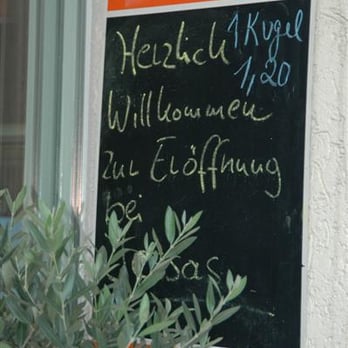 Herzlich
1 Kugel
1,20
Willkommen
zur Eröffnung
bei